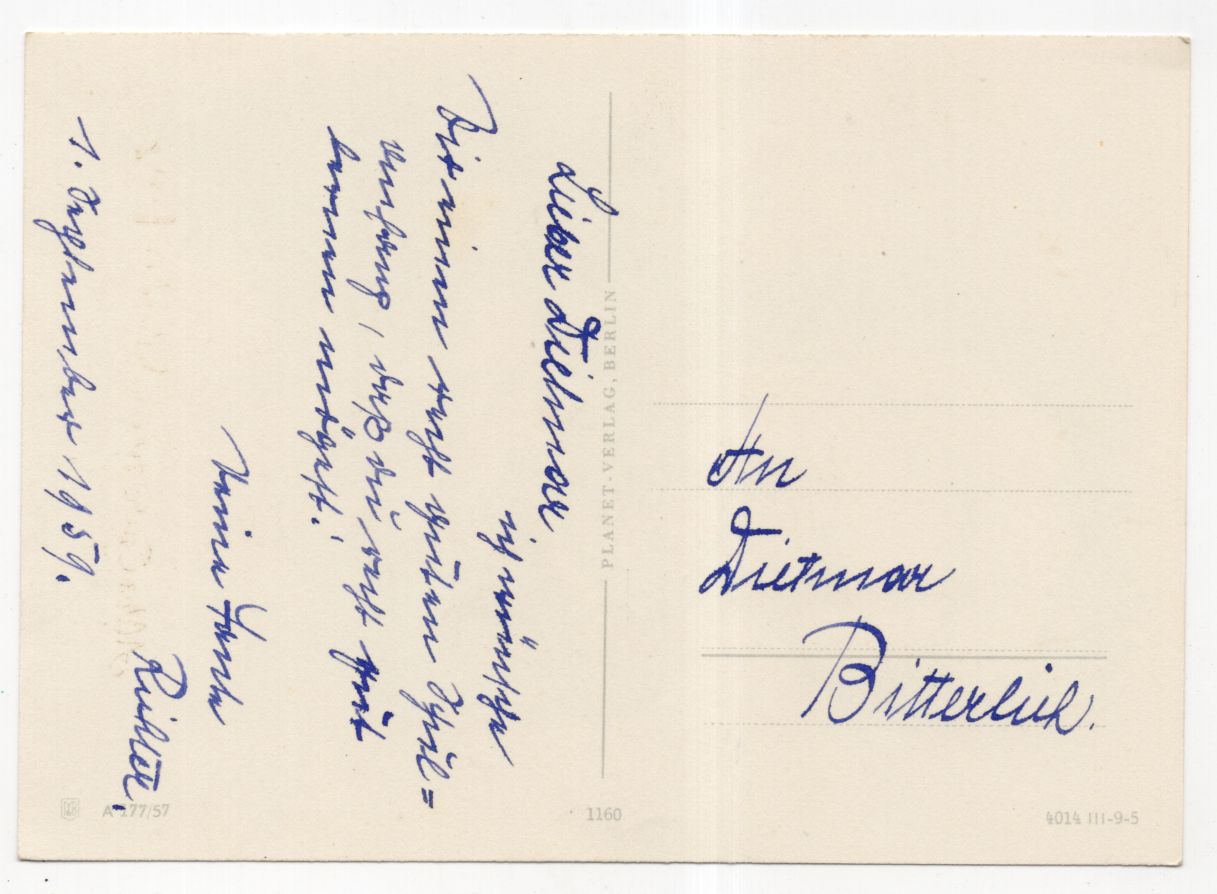 Lieber Dietmar
ich wünsche
Dir einen recht guten Schul=
anfang, daß du recht gut
lernen mögest.
Deine Tante
Richter.
1. September 1959.
PLANET-VERLAG, BERLIN
An
Dietmar
Bitterlich.
A 177/57
1160
4014 III-9-5